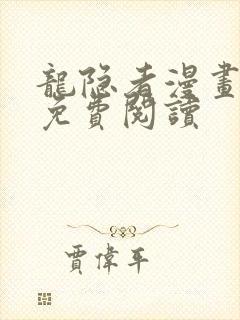 龍隐者漫畫
免費閱讀
賈偉平